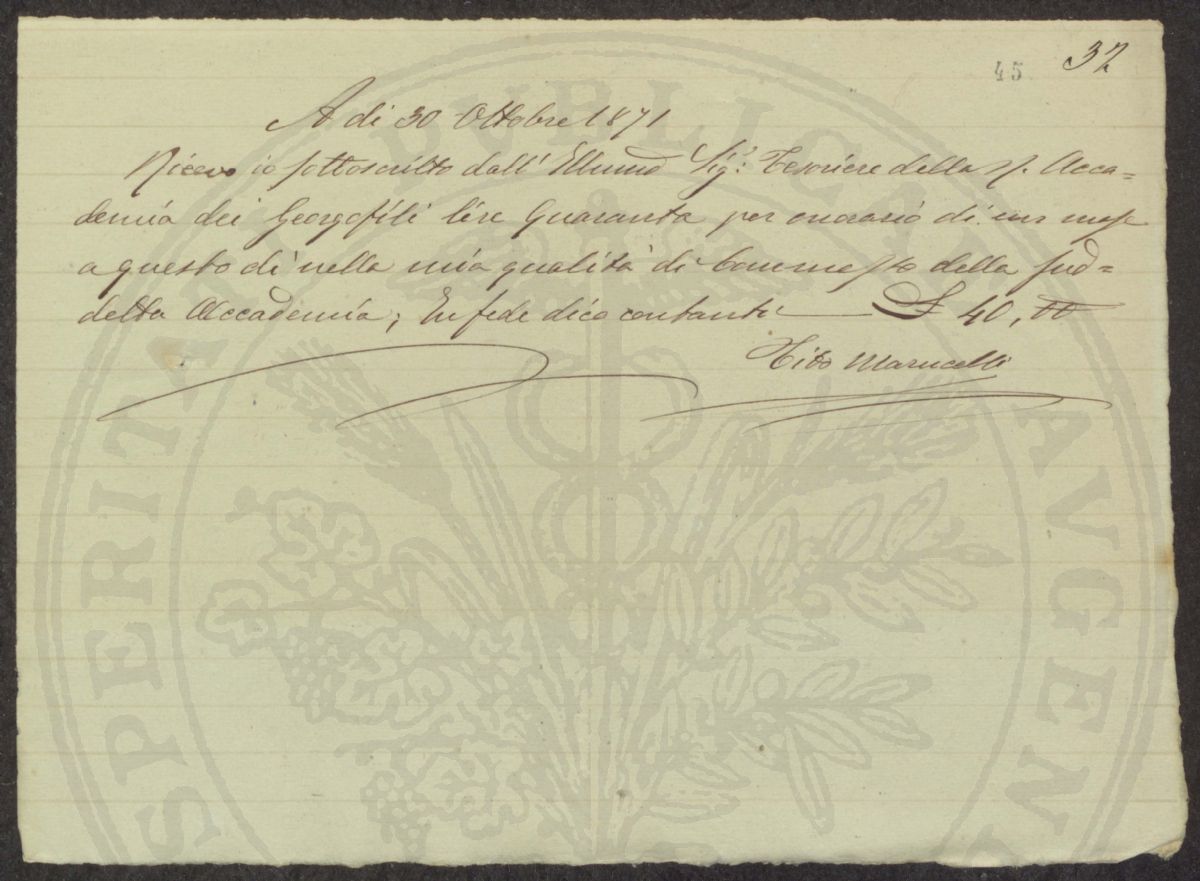 45 32
A di 30 Ottobre 1871
Ricevo io sottoscritto dall' Illumo Sig: Tesoriere della R. Acca=
demia dei Georgofili lire Quaranta per onorario di un mese
a questo di nella mia qualità di Commesso della sud=
detta Accademia; In fede dico contanti £ 40,
Tito Marucelli
PROSPERITATI PUBLICAE AUGENDAE